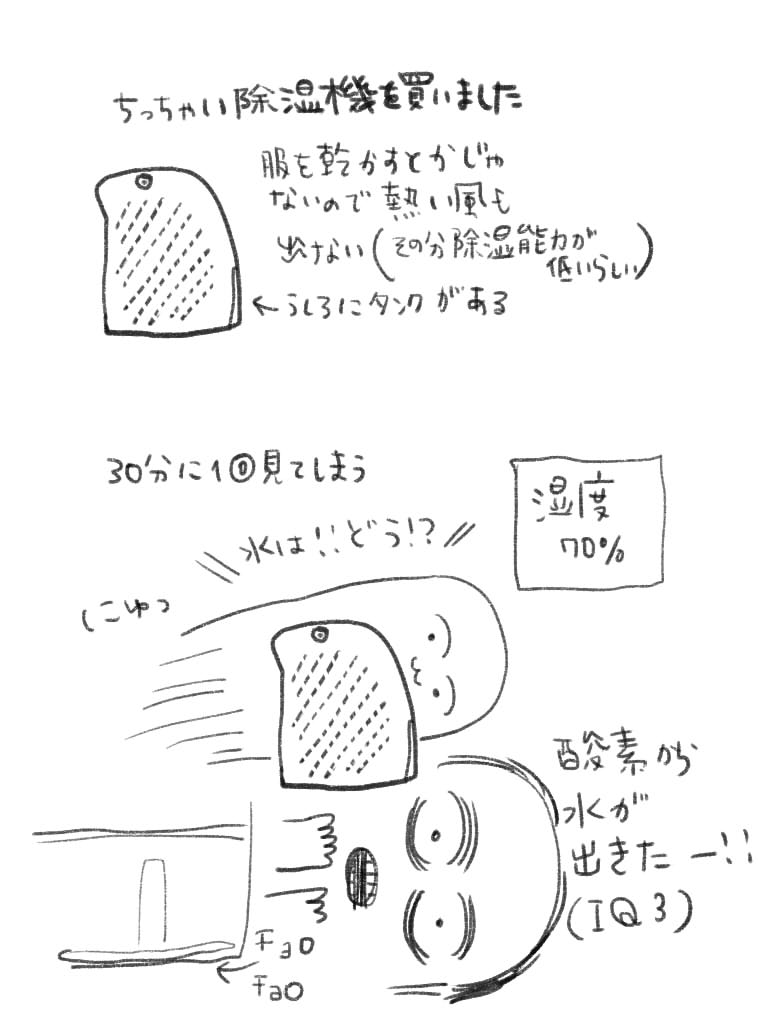 ちっちゃい除湿機を買いました
服を乾かすとかじゃ
ないので熱い風も
出ない(その分除湿能力が
低いらしい)
←うしろにタンクがある
30分に1回見てしまう
湿度
70%
水は!!どう!?
にゅっ
酸素から
水が
出きたー!!
(IQ3)